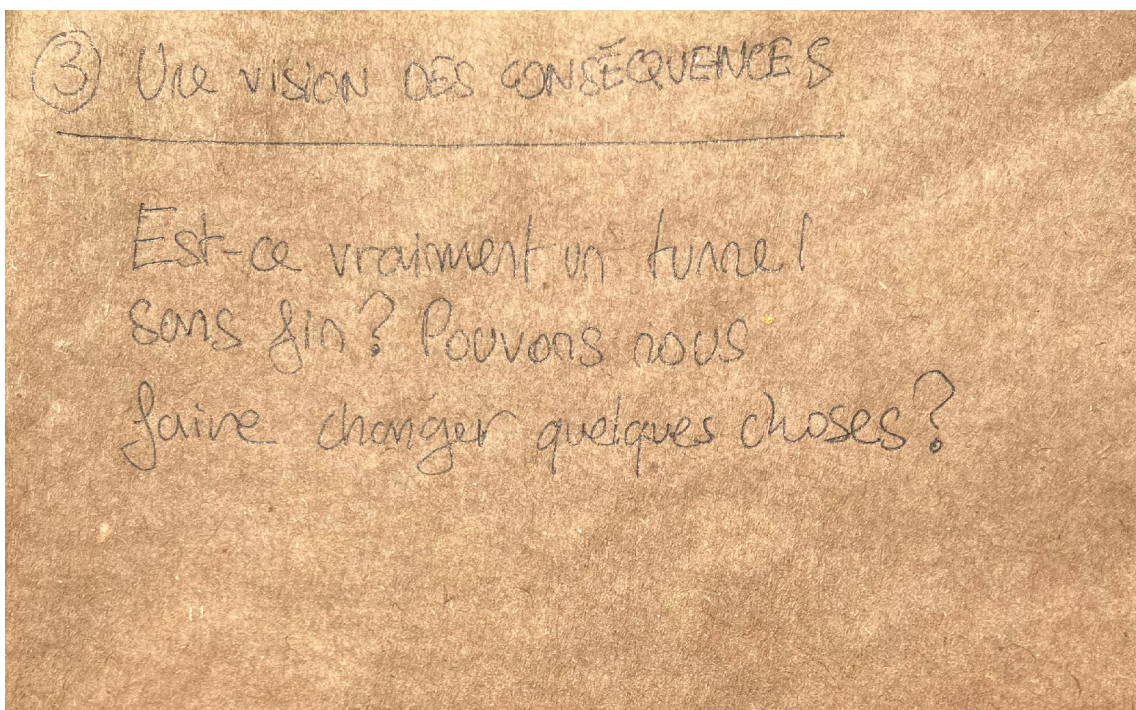 ③ Une vision DES CONSÉQUENCES
Est-ce vraiment un tunnel
sans fin? Pouvons nous
faire changer quelques choses?